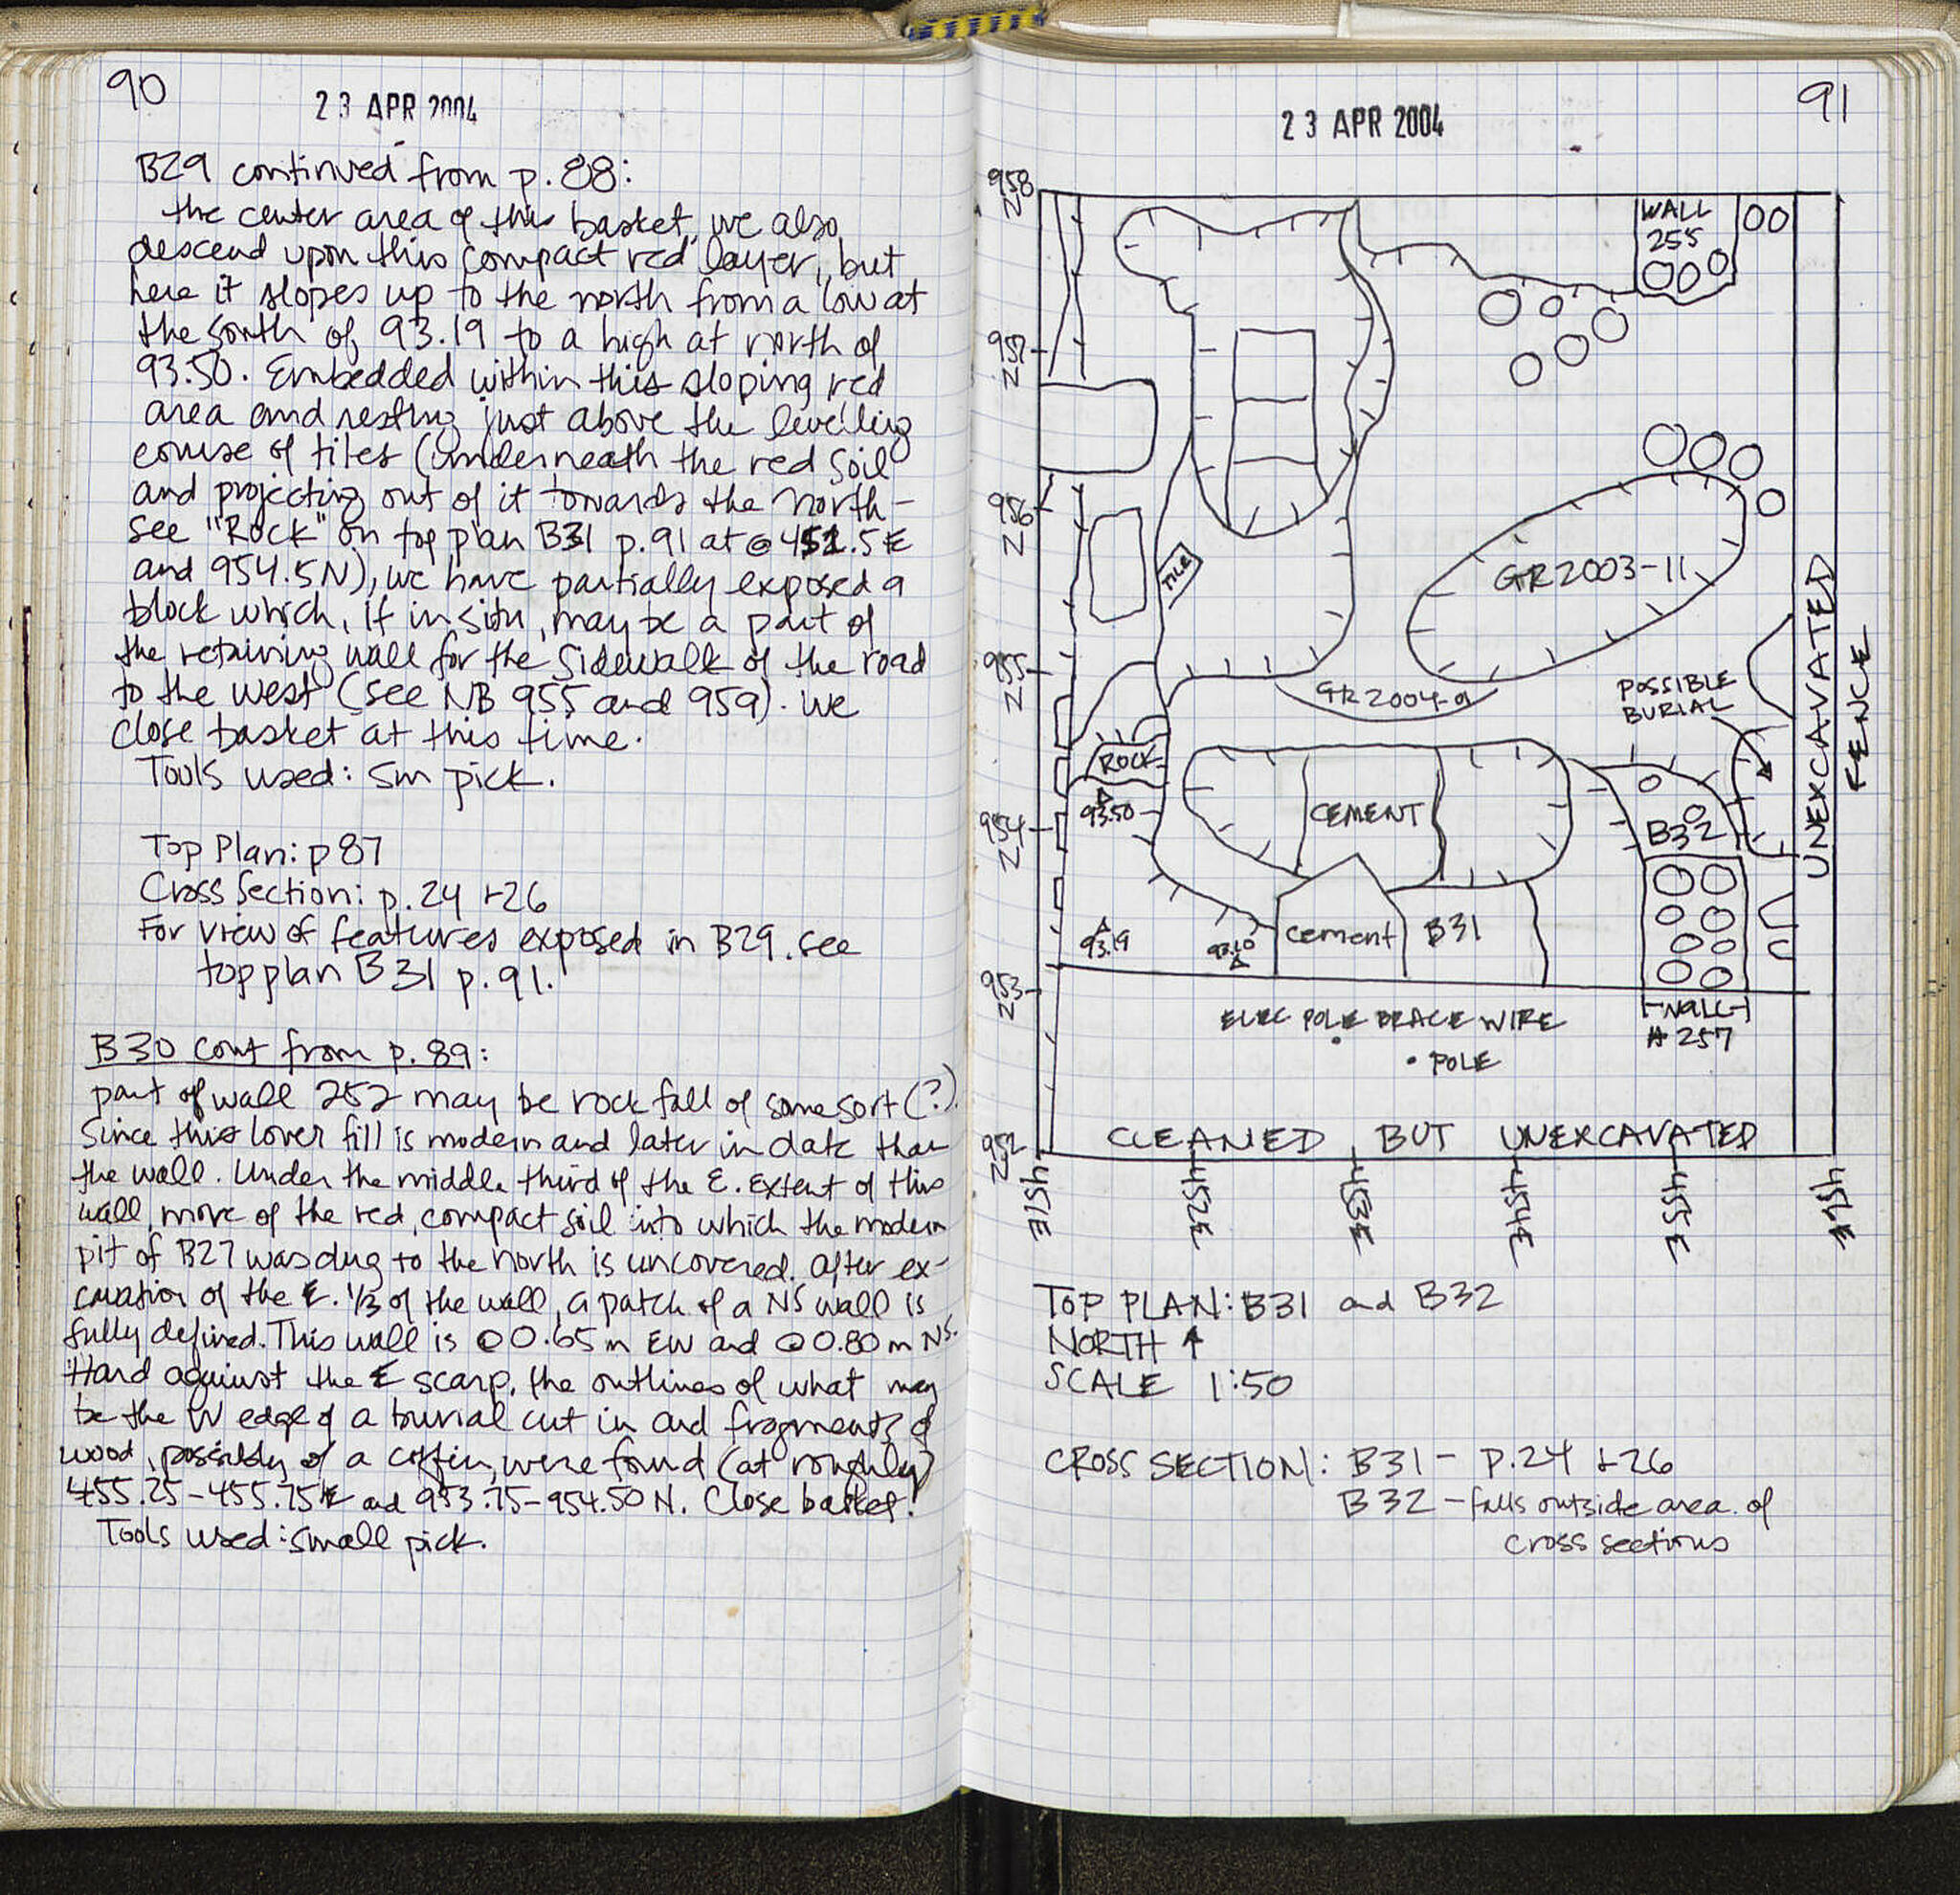 90
23 APR 2004
B29 continued from p. 88:
the center area of this basket, we also
descend upon this compact red layer, but
here it slopes up to the north from a low at
the south of 93.19 to a high at north of
93.50. Embedded within this sloping red
area and resting just above the levelling
course of tiles (underneath the red soil
and projecting out of it towards the north-
see "Rock" on top plan B31 p.91 at @ 451.5E
and 954.5N), we have partially exposed a
block which, if in situ, may be a part of
the retaining wall for the sidewalk of the road
to the west (see NB 955 and 959). We
close basket at this time.
Tools used: sm pick.
Top Plan: p 87
Cross Section: p. 24 +26
For view of features exposed in B29, see
top plan B31 p. 91.
B30 cont from p. 89:
part of wall 252 may be rock fall of some sort (?).
Since this lower fill is modern and later in date than
the wall. Under the middle third of the E. extent of this
wall, more of the red, compact soil into which the modern
pit of B27 was dug to the north is uncovered. After ex-
cavation of the E. 1/3 of the wall, a patch of a NS wall is
fully defined. This wall is @ 0.65 m EW and @ 0.80 m NS.
Hard against the E scarp, the outlines of what may
be the W edge of a burial cut in and fragments of
wood, possibly of a coffin, were found (at roughly
455.25-455.75E and 953.75-954.50 N. Close basket!
Tools used: small pick.
91
23 APR 2004
958 N
957 N
956 N
955 N
954 N
953 N
952 N
WALL
255
TILE
GR2003-11
GR2004-9
POSSIBLE
BURIAL
UNEXCAVATED
FENCE
ROCK
93.50
CEMENT
B32
93.19
93.10
cement
B31
WALL
# 257
ELEC POLE BRACE WIRE
POLE
CLEANED BUT UNEXCAVATED
451E
452E
453E
454E
455E
456E
TOP PLAN: B31 and B32
NORTH ↑
SCALE 1:50
CROSS SECTION: B31 - P.24 +26
B32 - falls outside area of
cross sections